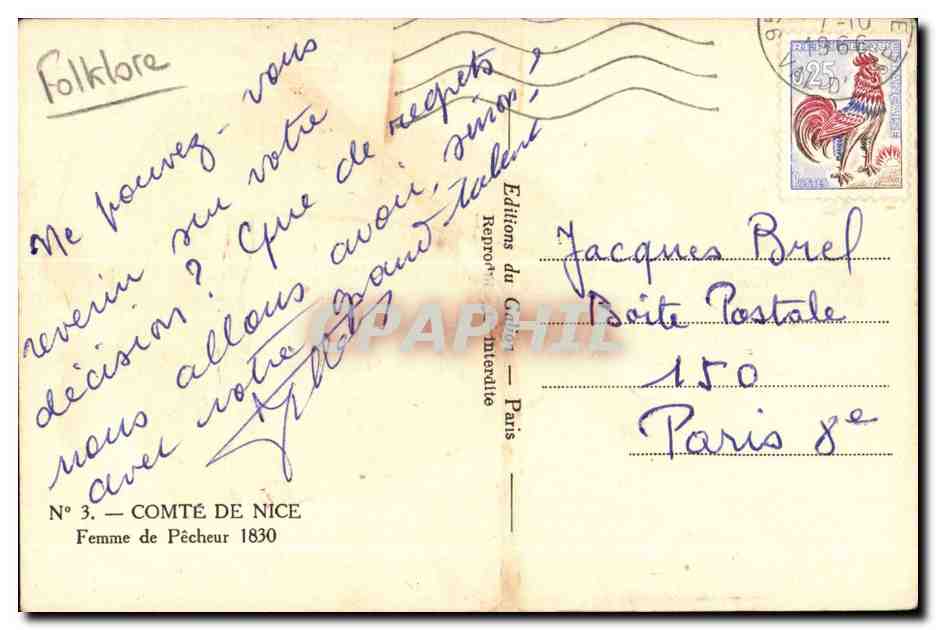 Folklore
Ne pouvez-vous
revenir sur votre
décision? Que de regrets
nous allons avoir, sinon,
avec votre grand talent!
7-10
1966
REPUBLIQUE FRANÇAISE
0,25
POSTES
Editions du Gabion — Paris
Reproduction Interdite
CPAPHIL
Jacques Brel
Boite Postale
150
Paris 8e
Nº 3. — COMTÉ DE NICE
Femme de Pêcheur 1830